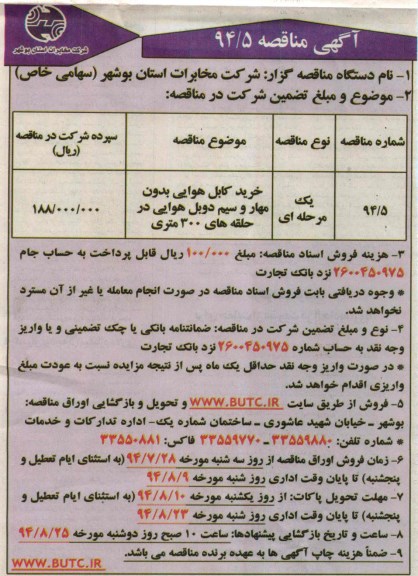 آگهی مناقصه ۹۴/۵
شرکت مخابرات استان بوشهر
۱- نام دستگاه مناقصه گزار: شرکت مخابرات استان بوشهر (سهامی خاص)
۲- موضوع و مبلغ تضمین شرکت در مناقصه:
شماره مناقصه
نوع مناقصه
موضوع مناقصه
سپرده شرکت در مناقصه
(ریال)
۹۴/۵
یک
مرحله ای
خرید کابل هوایی بدون
مهار و سیم دوبل هوایی در
حلقه های ۳۰۰ متری
۱۸۸/۰۰۰/۰۰۰
۳- هزینه فروش اسناد مناقصه: مبلغ ۱۰۰/۰۰۰ ریال قابل پرداخت به حساب جام
۲۶۰۰۴۵۰۹۷۵ نزد بانک تجارت
* وجوه دریافتی بابت فروش اسناد مناقصه در صورت انجام معامله یا غیر از آن مسترد
نخواهد شد.
۴- نوع و مبلغ تضمین شرکت در مناقصه: ضمانتنامه بانکی یا چک تضمینی و یا واریز
وجه نقد به حساب شماره ۲۶۰۰۴۵۰۹۷۵ نزد بانک تجارت
* در صورت واریز وجه نقد حداقل یک ماه پس از نتیجه مزایده نسبت به عودت مبلغ
واریزی اقدام خواهد شد.
۵- فروش از طریق سایت WWW.BUTC.IR و تحویل و بازگشایی اوراق مناقصه:
بوشهر - خیابان شهید عاشوری - ساختمان شماره یک- اداره تدارکات و خدمات
* شماره تلفن: ۳۳۵۵۹۸۸۰ - ۳۳۵۵۹۷۷۰ فاکس: ۳۳۵۵۰۸۸۱
۶- زمان فروش اوراق مناقصه از روز سه شنبه مورخه ۹۴/۷/۲۸ (به استثنای ایام تعطیل و
پنجشنبه) تا پایان وقت اداری روز شنبه مورخه ۹۴/۸/۹
۷- مهلت تحویل پاکات: از روز یکشنبه مورخه ۹۴/۸/۱۰ (به استثنای ایام تعطیل و
پنجشنبه) تا پایان وقت اداری روز شنبه مورخه ۹۴/۸/۲۳
۸- ساعت و تاریخ بازگشایی پیشنهادها: ساعت ۱۰ صبح روز دوشنبه مورخه ۹۴/۸/۲۵
۹- ضمناً هزینه چاپ آگهی ها به عهده برنده مناقصه می باشد.
WWW.BUTC.IR